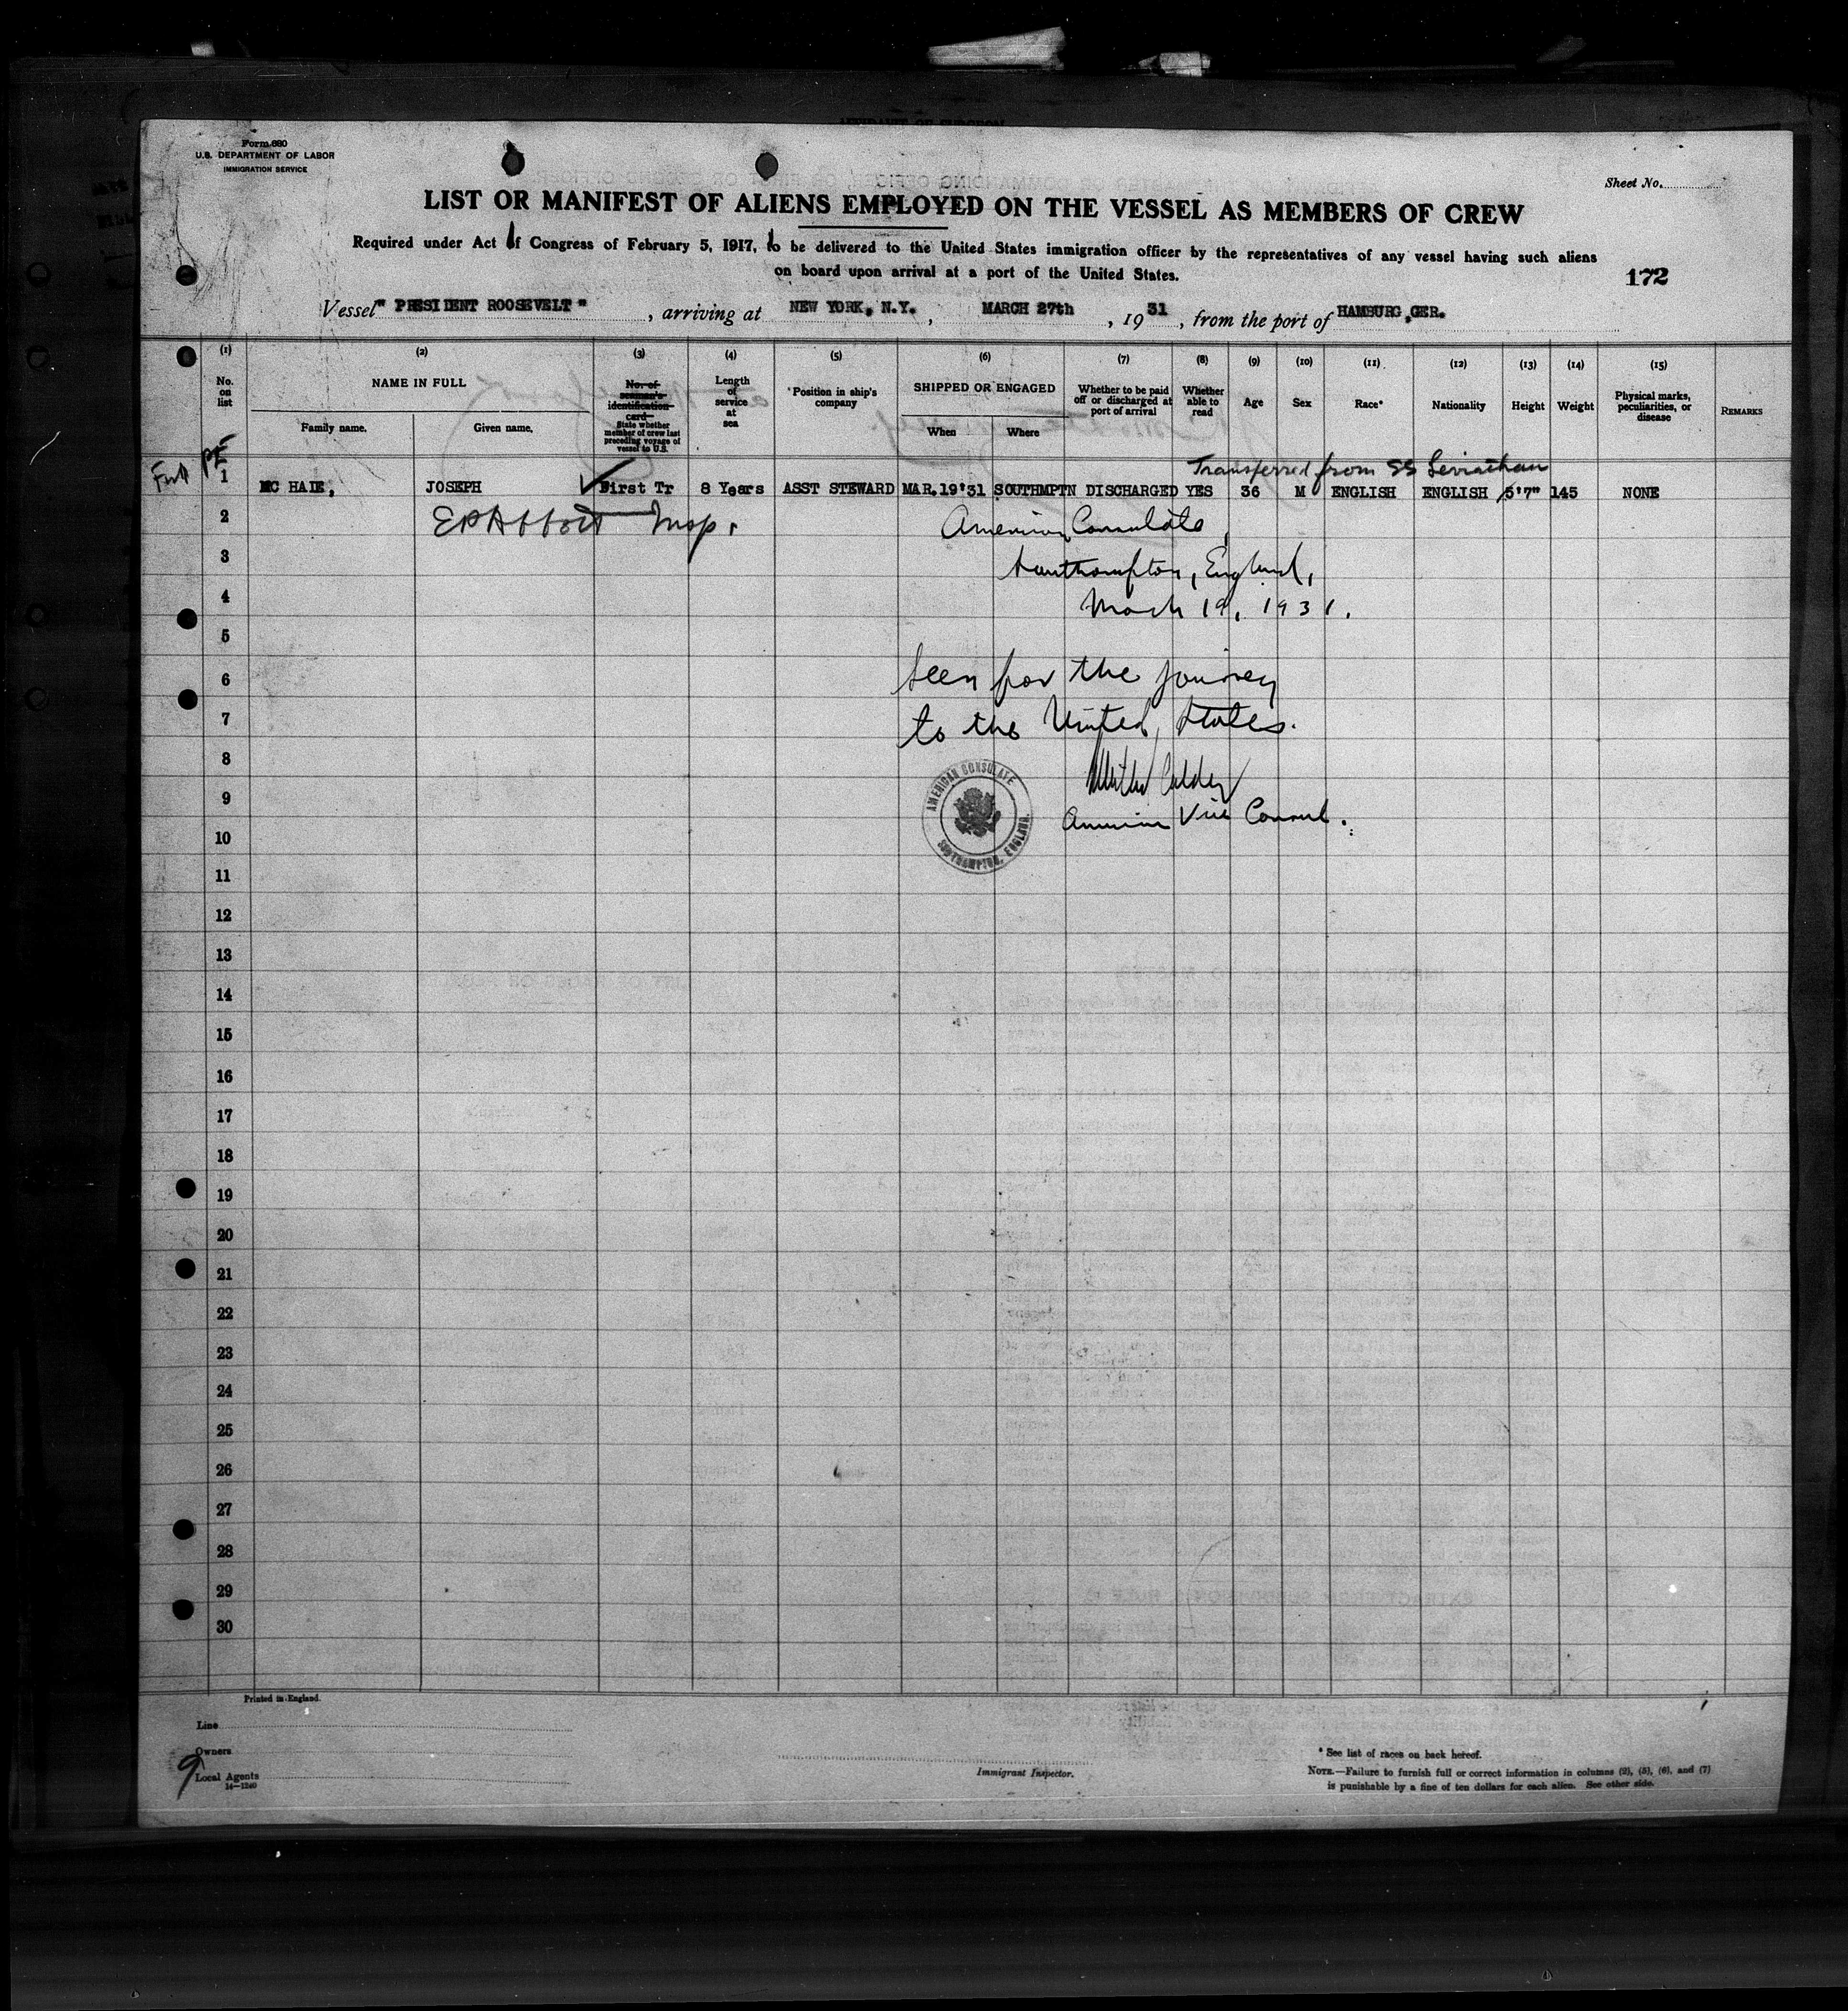 Form 680
U.S. DEPARTMENT OF LABOR
IMMIGRATION SERVICE
Sheet No.
LIST OR MANIFEST OF ALIENS EMPLOYED ON THE VESSEL AS MEMBERS OF CREW
Required under Act of Congress of February 5, 1917, to be delivered to the United States immigration officer by the representatives of any vessel having such aliens
on board upon arrival at a port of the United States.
172
Vessel " PRESIDENT ROOSEVELT " , arriving at NEW YORK, N.Y. , MARCH 27th , 1931 , from the port of HAMBURG, GER.
(1) (2) (3) (4) (5) (6) (7) (8) (9) (10) (11) (12) (13) (14) (15)
No. on list
NAME IN FULL
Family name. Given name.
No. of seaman's identification card
State whether member of crew last preceding voyage of vessel to U.S.
Length of service at sea
Position in ship's company
SHIPPED OR ENGAGED
When Where
Whether to be paid off or discharged at port of arrival
Whether able to read
Age
Sex
Race*
Nationality
Height
Weight
Physical marks, peculiarities, or disease
REMARKS
Transferred from SS Leviathan
1 MC HALE, JOSEPH First Tr 8 Years ASST STEWARD MAR.19'31 SOUTHMPTN DISCHARGED YES 36 M ENGLISH ENGLISH 5'7" 145 NONE
2 EP Abbott Insp. American Consulate,
3 Southampton, England,
4 March 19, 1931.
5
6 Seen for the journey
7 to the United States.
8
9 American Vice Consul.
AMERICAN CONSULATE
SOUTHAMPTON, ENGLAND.
10
11
12
13
14
15
16
17
18
19
20
21
22
23
24
25
26
27
28
29
30
Printed in England.
Line
Owners
Local Agents
14—1240
9
Immigrant Inspector.
* See list of races on back hereof.
NOTE.—Failure to furnish full or correct information in columns (2), (5), (6), and (7)
is punishable by a fine of ten dollars for each alien. See other side.